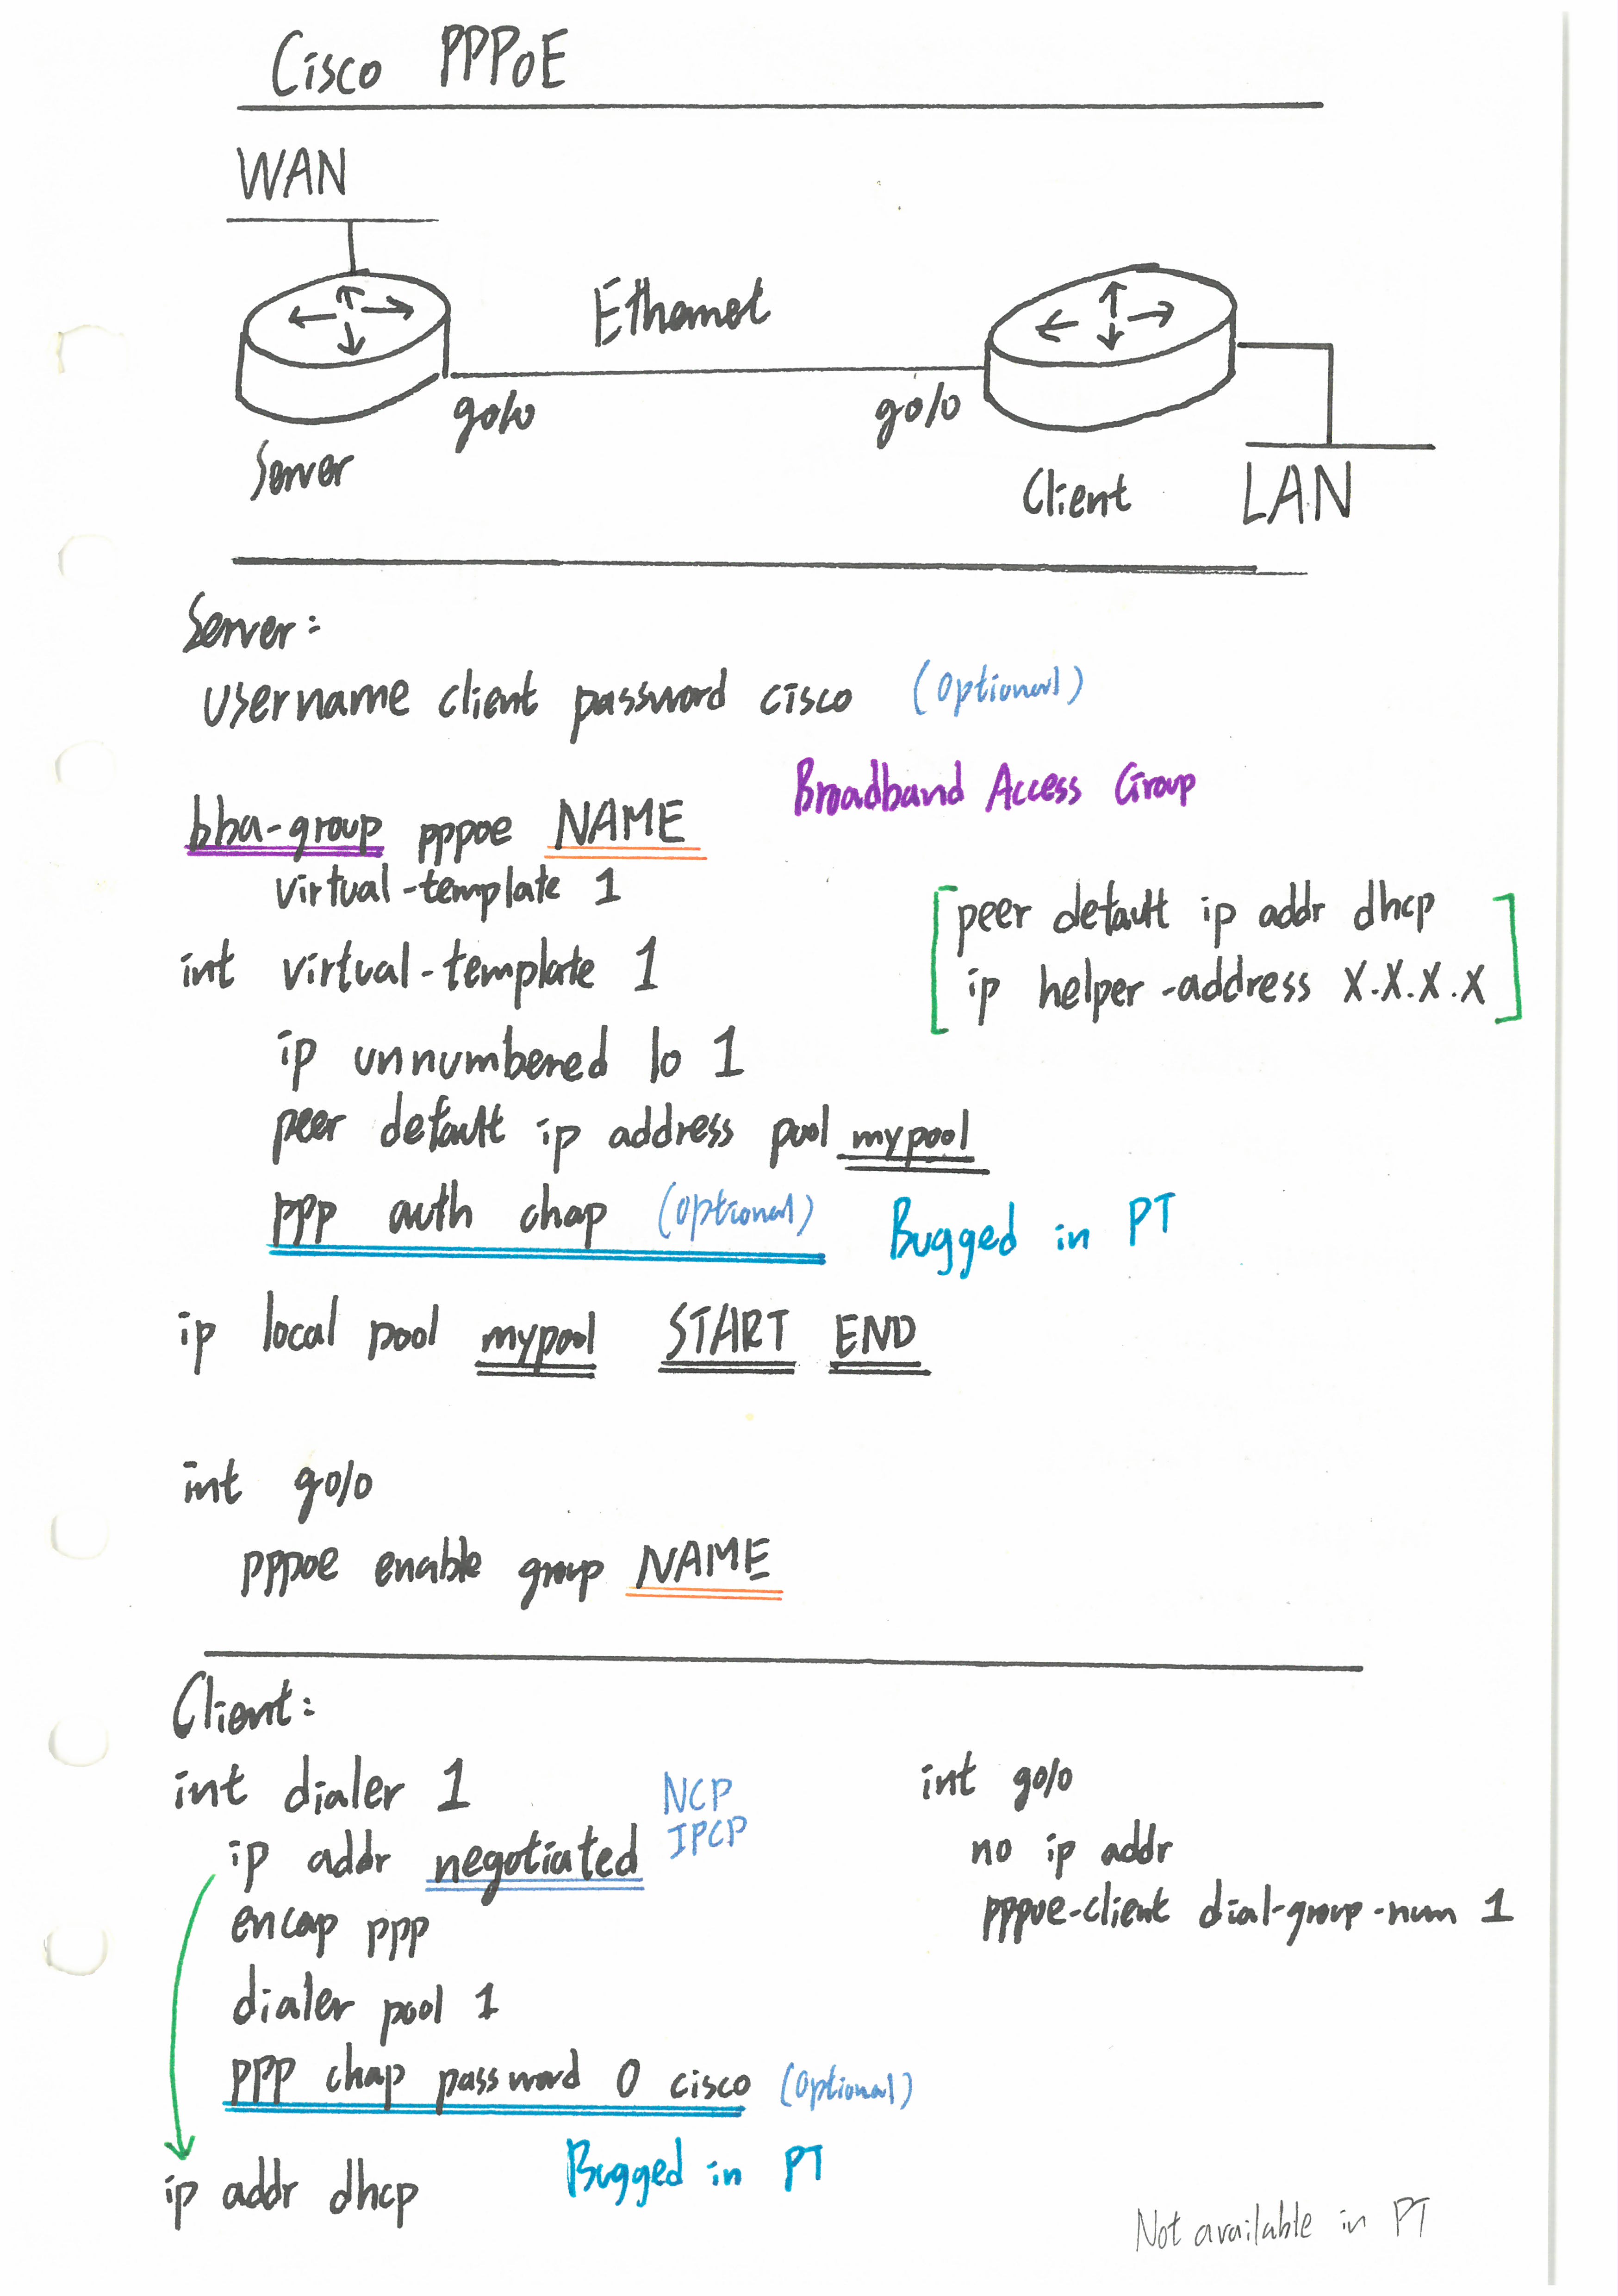 Cisco PPPoE
WAN
Ethernet
g0/0
g0/0
Server
Client
LAN
Server:
username client password cisco (optional)
Broadband Access Group
bba-group pppoe NAME
virtual-template 1
int virtual-template 1
peer default ip addr dhcp
ip helper-address X.X.X.X
ip unnumbered lo 1
peer default ip address pool mypool
ppp auth chap (optional) Bugged in PT
ip local pool mypool START END
int g0/0
pppoe enable group NAME
Client:
int dialer 1
ip addr negotiated
NCP
IPCP
encap ppp
dialer pool 1
ppp chap password 0 cisco (optional)
Bugged in PT
ip addr dhcp
int g0/0
no ip addr
pppoe-client dial-group-num 1
Not available in PT